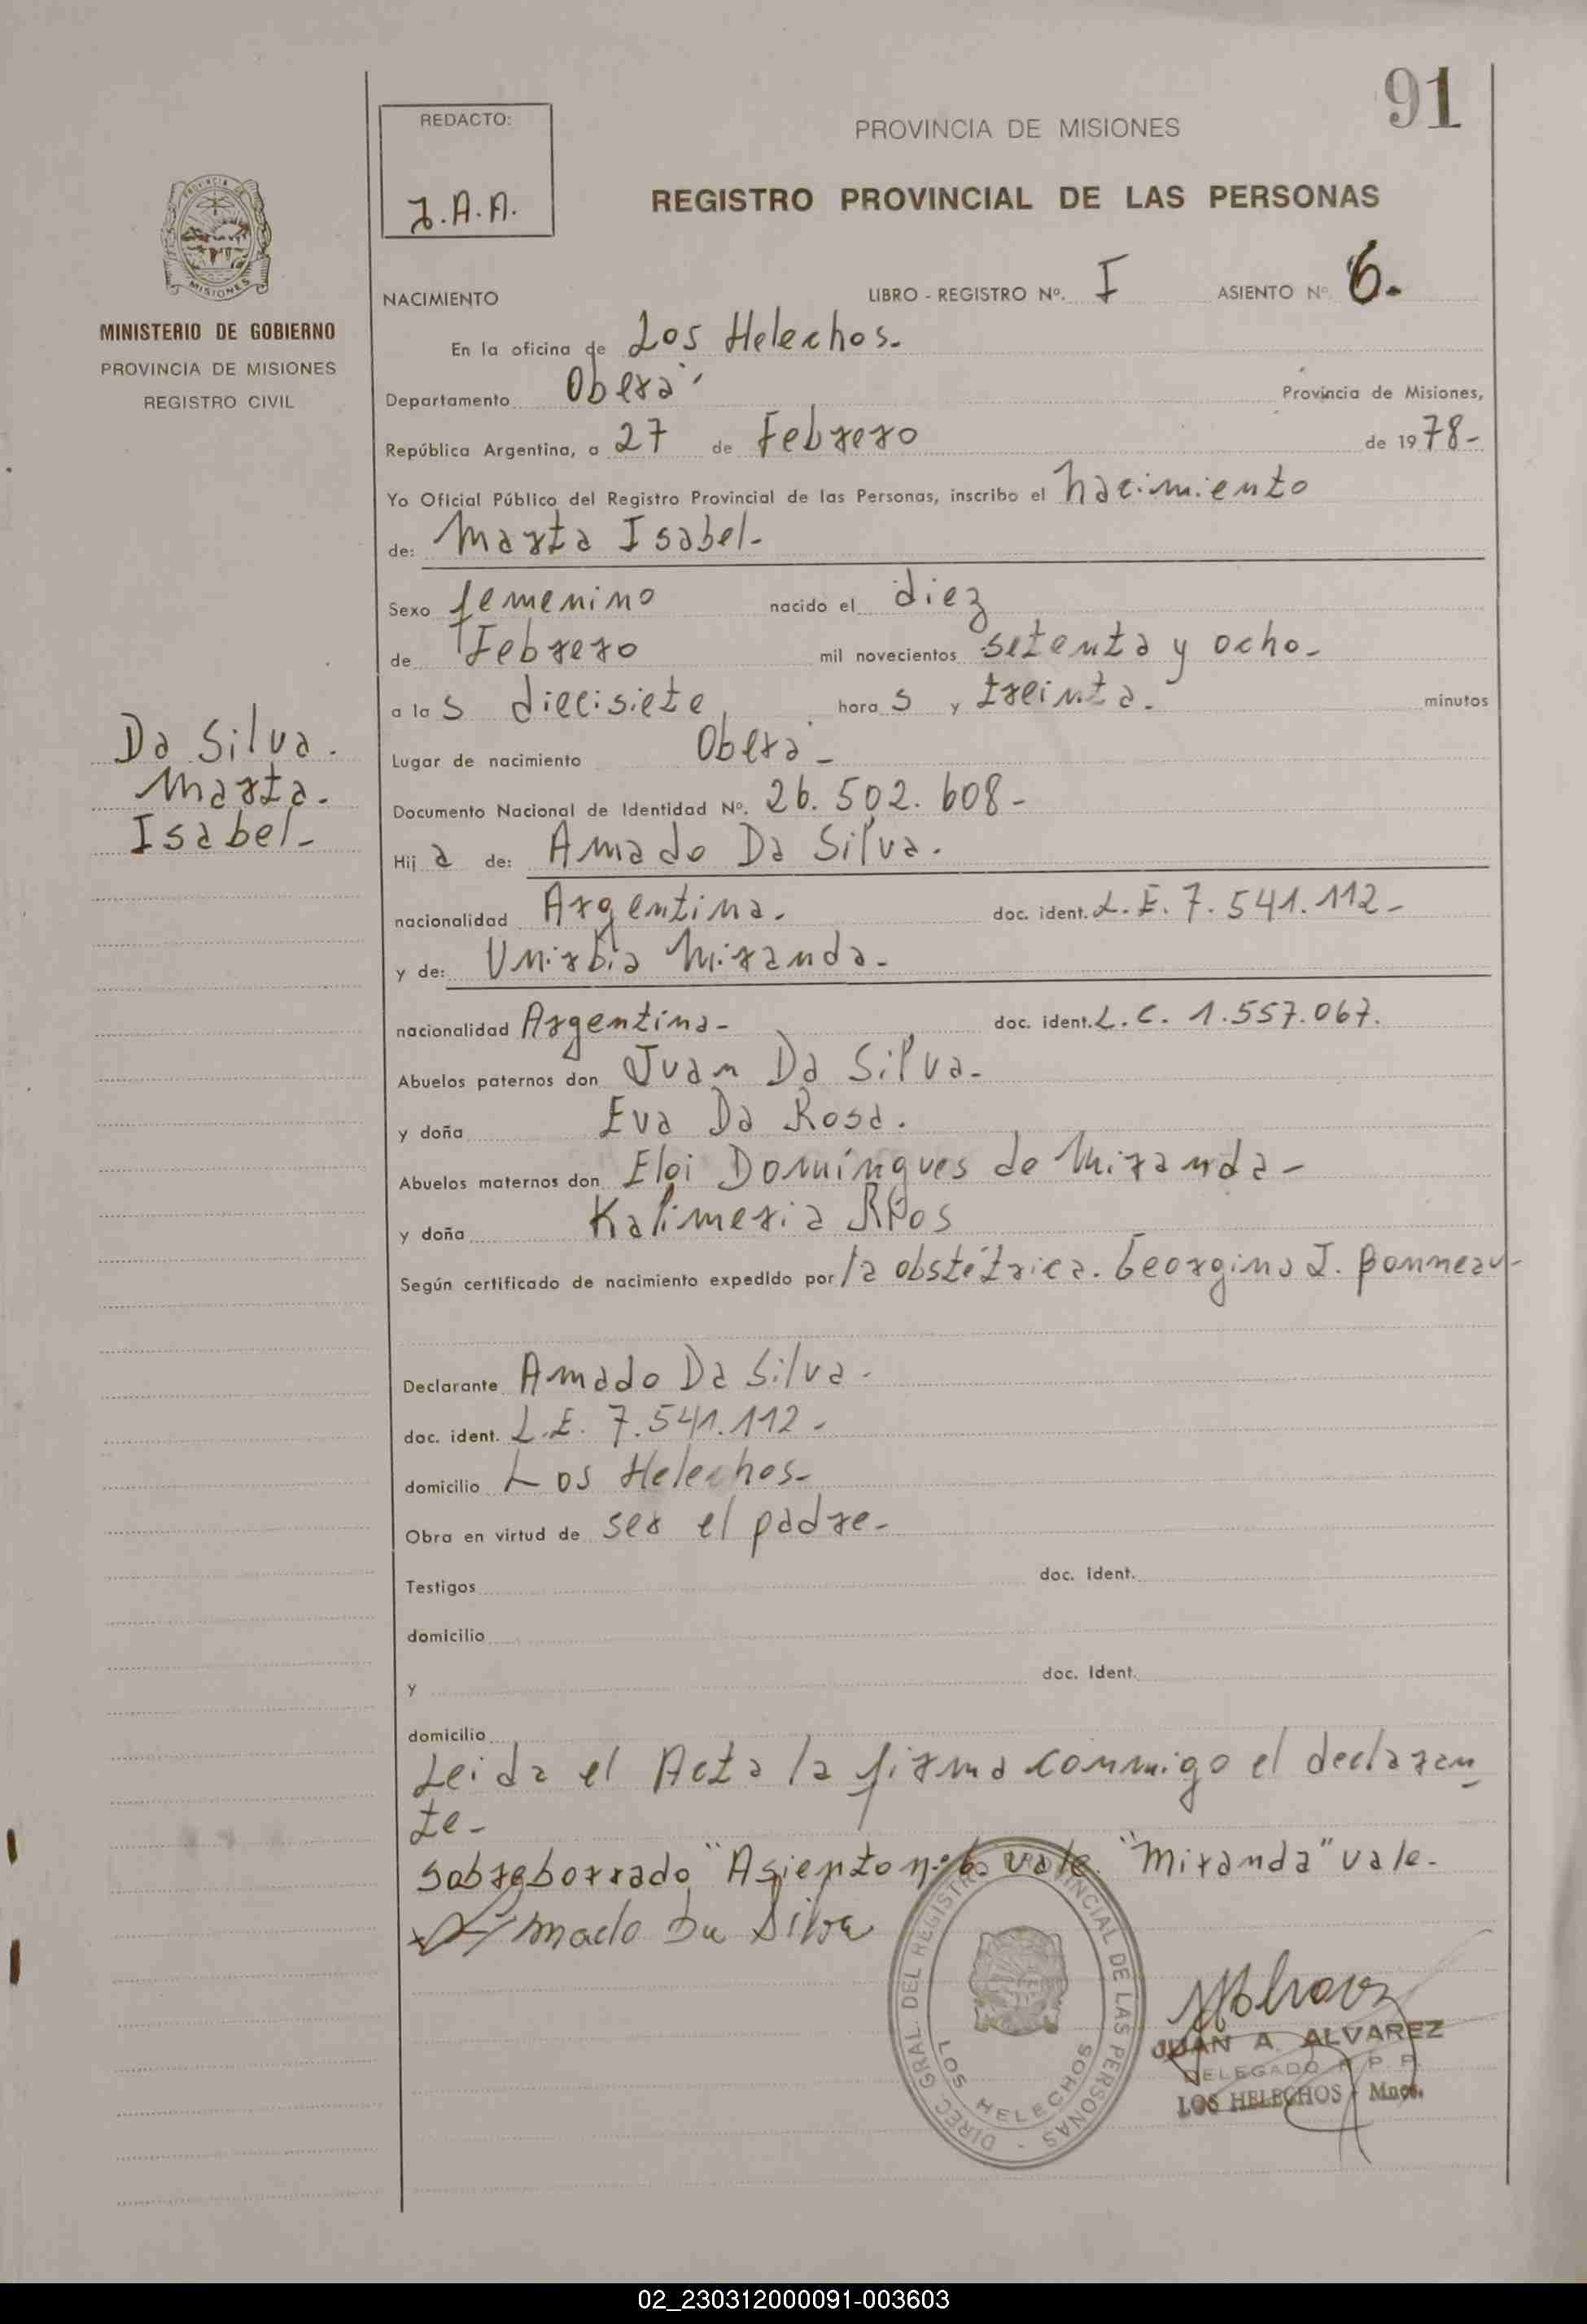 91
REDACTO:
J.A.A.
PROVINCIA DE MISIONES
REGISTRO PROVINCIAL DE LAS PERSONAS
PROVINCIA DE
MISIONES
MINISTERIO DE GOBIERNO
PROVINCIA DE MISIONES
REGISTRO CIVIL
NACIMIENTO LIBRO - REGISTRO Nº. I ASIENTO Nº 6.
En la oficina de Los Helechos.
Departamento Oberá Provincia de Misiones,
República Argentina, a 27 de Febrero de 1978-
Yo Oficial Público del Registro Provincial de las Personas, inscribo el nacimiento
de: Marta Isabel-
Sexo femenino nacido el diez
de Febrero mil novecientos setenta y ocho-
a las diecisiete hora s y treinta. minutos
Lugar de nacimiento Oberá-
Da Silva.
Marta.
Isabel-
Documento Nacional de Identidad Nº. 26.502.608-
Hij a de: Amado Da Silva.
nacionalidad Argentina. doc. ident. L.E. 7.541.112-
y de: Unirbia Miranda-
nacionalidad Argentina- doc. ident. L.C. 1.557.067.
Abuelos paternos don Juan Da Silva-
y doña Eva Da Rosa.
Abuelos maternos don Eloi Domíngues de Miranda-
y doña Kalimeria
Según certificado de nacimiento expedido por la obstétrica. Georgina J. Bonneau-
Declarante Amado Da Silva-
doc. ident. L.E. 7.541.112-
domicilio Los Helechos-
Obra en virtud de ser el padre-
Testigos doc. Ident.
domicilio
y doc. Ident.
domicilio
Leida el Acta la firma conmigo el declaran
te-
sobreborrado "Asiento nº 6 vale "Miranda" vale-
Amado Da Silva
DIREC. GRAL. DEL REGISTRO PROVINCIAL DE LAS PERSONAS -
LOS HELECHOS
JUAN A. ALVAREZ
DELEGADO R. P. P.
LOS HELECHOS - Mnes.
02_230312000091-003603